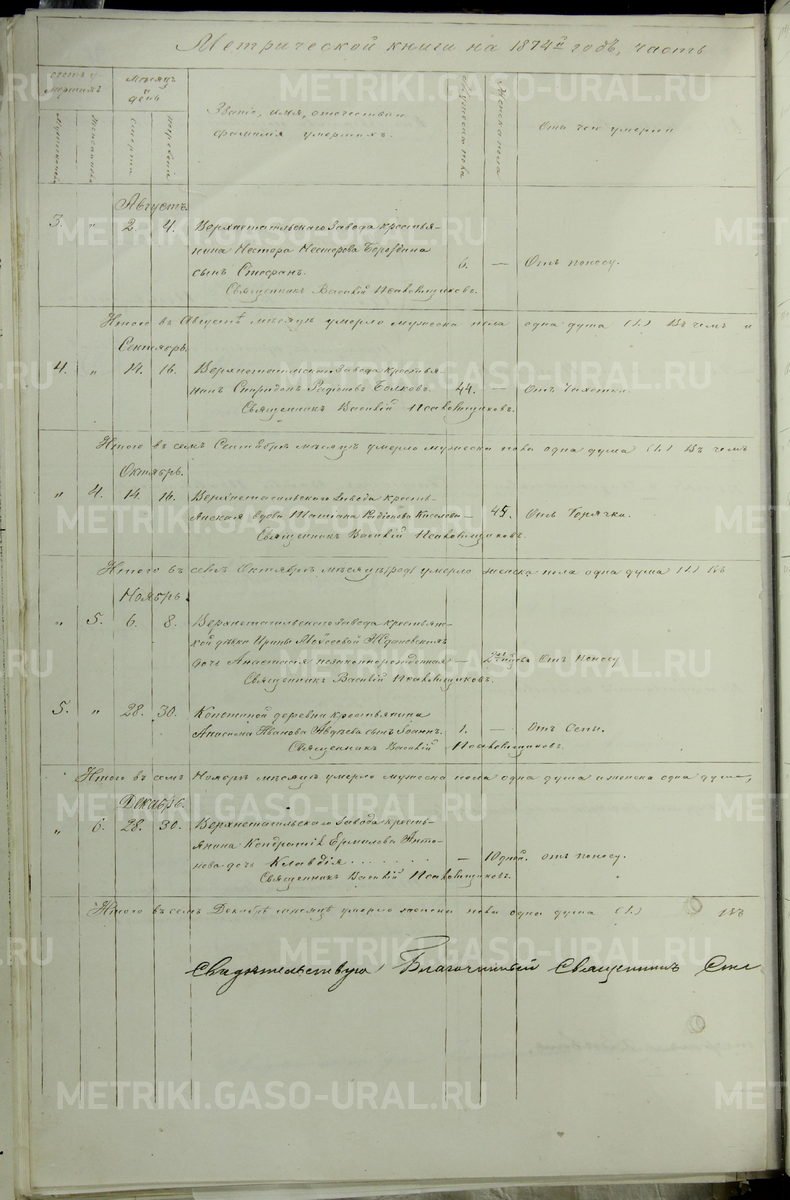 Метрической книги на 1874й годъ, часть
Счетъ умершихъ
Мѣсяцъ и день
Званіе, имя, отчество и
фамилія умершихъ.
Мужеска пола
Женска пола
Отъ чего умерли
Мужескій
Женскій
смерти
погребенія
Августъ.
3. " 2. 4. Верхнетагильскаго Завода крестья-
нина Нестора Нестерова Бородина
сынъ Стефанъ. 6. — Отъ поносу.
Священникъ Василій
Итого въ Августѣ мѣсяцѣ умерло мужеска пола одна душа (1.) Въ чемъ и
Сентябрь.
4. " 14. 16. Верхнетагильскаго Завода крестья-
нинъ Спиридонъ Родіоновъ 44. — Отъ Чахотки.
Священникъ Василій
Итого въ семъ Сентябрѣ мѣсяцѣ умерло мужеска пола одна душа (1.) Въ чемъ
Октябрь.
" 4. 14. 16. Верхнетагильскаго Завода кресть-
янская вдова Татіана Родіонова Киселева — 45. Отъ Горячки.
Священникъ Василій
Итого въ семъ Октябрѣ мѣсяцѣ умерло женска пола одна душа (1.) Въ
Ноябрь.
" 5. 6. 8. Верхнетагильскаго Завода крестьянс-
кой дѣвки Ирины Моѵсеевой
дочь Анастасія незаконнорожденная — Отъ поносу
Священникъ Василій
5. " 28. 30. деревни крестьянина
Иванова Авдѣева сынъ Іоаннъ. 1. — Отъ Оспы.
Священникъ Василій
Итого въ семъ Ноябрѣ мѣсяцѣ умерло мужеска пола одна душа и женска одна душа,
Декабрь.
" 6. 28. 30. Верхнетагильскаго Завода кресть-
янина Кондратія Ермилова Анто-
нова дочь Клавдія — 10 дней. отъ поносу.
Священникъ Василій
Итого въ семъ Декабрѣ мѣсяцѣ умерло женска пола одна душа (1.) Въ
Свидѣтельствую Благочинный Священникъ
METRIKI.GASO-URAL.RU